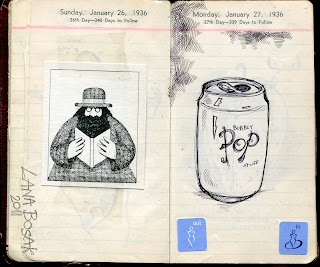 Sunday, January 26, 1936
26th Day—340 Days to Follow
LANA BOSAK
2011
Monday, January 27, 1936
27th Day—339 Days to Follow
BUBBLY
Pop
STUFF
out
in